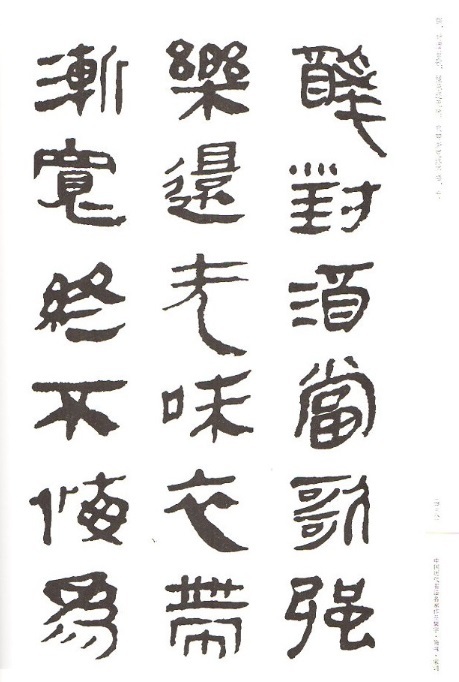 醉對酒當歌强
樂還无味衣帶
漸寬終不悔爲